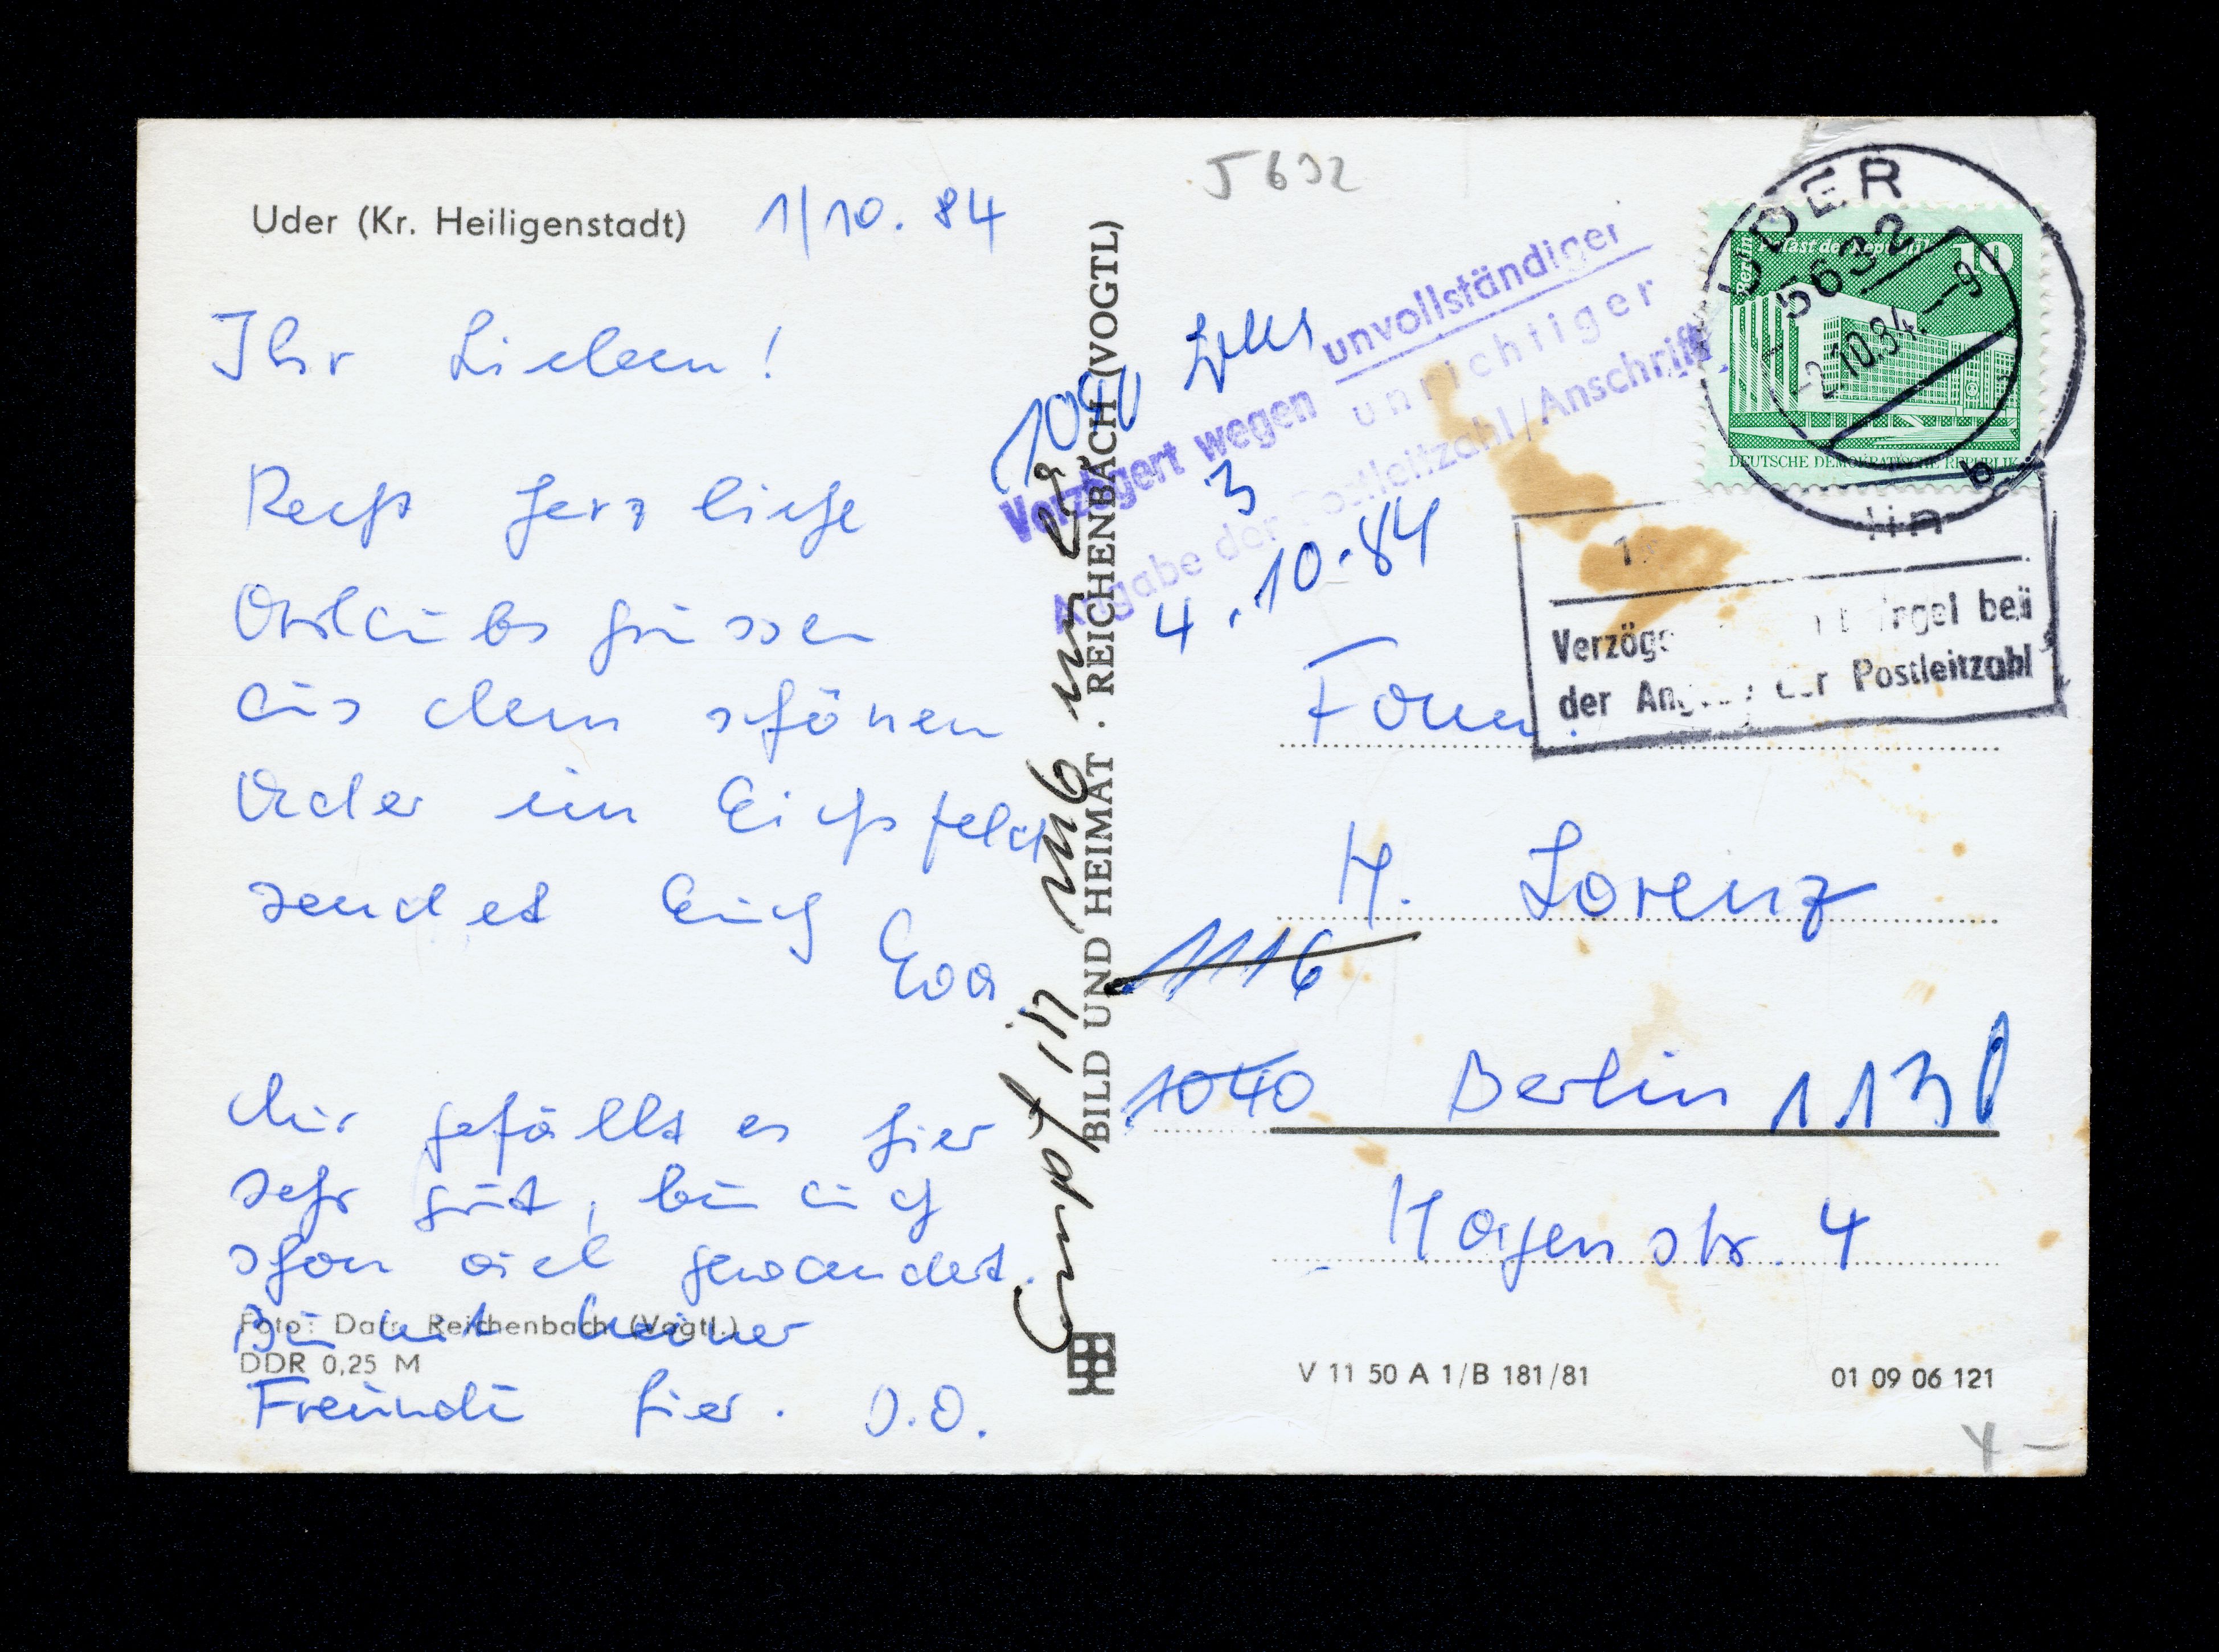 Uder (Kr. Heiligenstadt) 1/10. 84
Ihr Lieben!
Recht herzliche
Urlaubsgrüsse
aus dem schönen
Uder im Eichsfeld
sendet Euch
Eva
Mir gefällt es hier
sehr gut, bin auch
schon viel gewandert.
Bin mit meiner
Freundin hier. D.O.
Foto: Darr, Reichenbach (Vogtl.)
DDR 0,25 M
BILD UND HEIMAT . REICHENBACH (VOGTL)
J 632
1040
3
4.10.84
Verzögert wegen unvollständiger
unrichtiger
Angabe der Postleitzahl / Anschrift
UDER
5632
-2.10.84.-9
b
Berlin Palast der Republik 10
DEUTSCHE DEMOKRATISCHE REPUBLIK
bei
der Angabe der Postleitzahl
Fam.
H. Lorenz
1116
1040 Berlin 1130
Hagenstr. 4
V 11 50 A 1/B 181/81 01 09 06 121